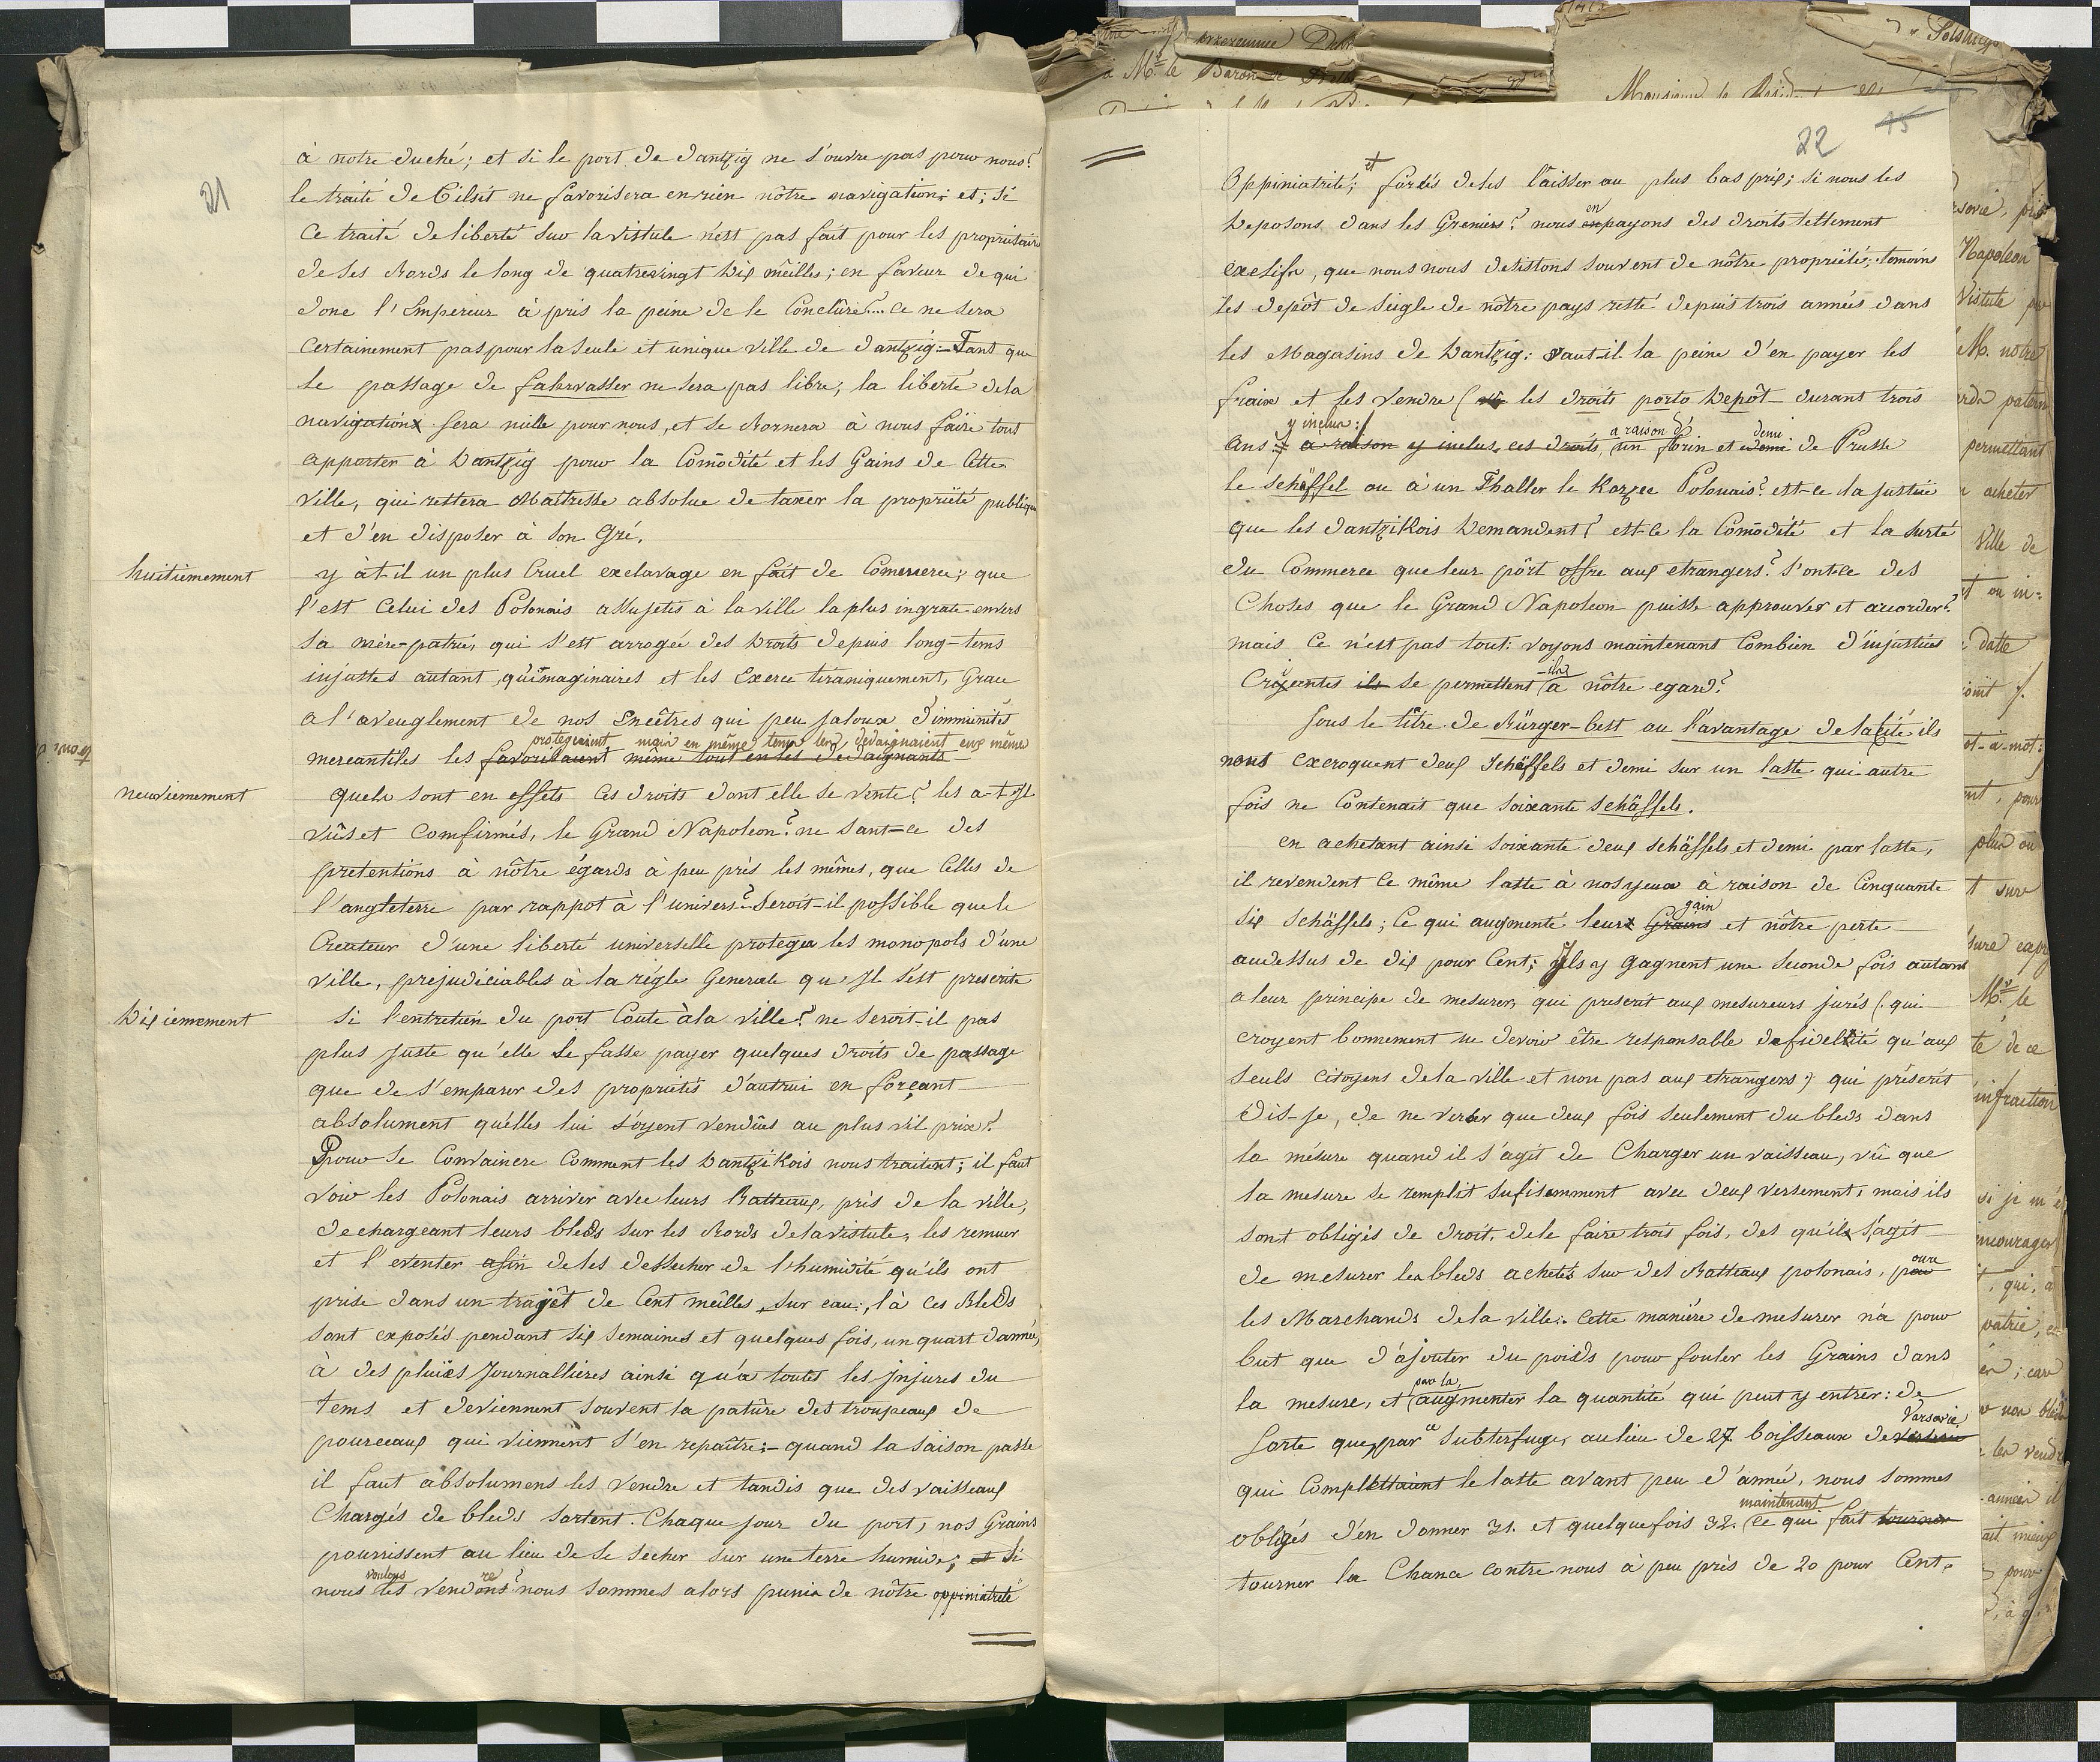 21
à notre duché; et si le port de dantzig ne s'ouvre pas pour nous?
le traité de Tilsit ne favorisera en rien nôtre navigation; et; si
Ce traité de liberté sur la vistule n'est pas fait pour les proprietaires
de ses Bords le long de quatrevingt dix mêilles; en faveur de qui
donc l'Empereur à pris la peine de le Conclûre?... Ce ne sera
Certainement pas pour la seule et unique ville de dantzig:- Tant que
le passage de fahrvasser ne sera pas libre; la liberté de la
navigation sera nulle pour nous, et se Bornera à nous faire tout
apporter à Dantzig pour la Comõdité et les Gains de Cette
ville, qui restera Maîtresse absolue de taxer la propriété publique
et d'en disposer à son Gré.
huitiemement
y àt-il un plus Cruel exclavage en fait de Comerce; que
l'est Celui des Polonais assujetis à la ville la plus ingrate envers
sa mère-patrie, qui s'est arrogée des Droits depuis long-tems
injustes autant, qu'imaginaires et les Exerce tiraniquement, Grace
a l'aveuglement de nos Encêtres qui peu jaloux d'immunités
protegeaient mais en même tems les dedaignaient eux même
mercantiles les favorisaient même tout en les dedaignants
neuviemement
quels sont en effets Ces droits dont elle se vente? les a-t-Il
vûs et comfirmés, le Grand Napoleon? ne sont-ce des
pretentions à nôtre égards à peu près les mêmes, que Celles de
l'angleterre par rappot à l'univers? Seroit-il possible que le
Createur d'une liberté universelle protegea les monopols d'une
ville, prejudiciables à la régle Generale qu'Il s'est prescrite
Dixiemement
Si l'entretien du port Coute à la ville? ne seroit-il pas
plus juste qu'elle se fasse payer quelques droits de passage
que de s'emparer des proprietés d'autrui en forçant
absolument qu'elles lui s'oyent vendûes au plus vil prix?
Pour se Convaincre Comment les Dantzikois nous traitent; il faut
voir les Polonais arriver avec leurs Batteaux, près de la ville,
dechargeant leurs bleds sur les Bords de la vistule, les remuer
et l'eventer afin de les dessecher de l'humidité qu'ils ont
prise dans un trajêt de Cent meîlles sur eau; là Ces Bleds
sont exposés pendant six semaines et quelques fois, un quart d'année,
à des pluies Journallières ainsi qu'a toutes les Injures du
tems et deviennent souvent la patûre des troupeaux de
pourceaux qui viennent s'en repaître:- quand la saison passe
il faut absolument les vendre et tandis que des vaisseaux
Chargés de bleds sortent Chaque jour du port, nos Grains
pourrissent au lieu de se secher sur une terre humide; et si
voulons re
nous les vendons? nous sommes alors punis de nôtre oppiniatreté
22 15
et
Oppiniatrité; forcés de les laîsser au plus bas prix; si nous les
en
Deposons dans les Greniers? nous en payons des droits tellement
exclifs, que nous nous desistons souvent de nôtre propriété; temoins
les depôt de Seigle de nôtre pays resté depuis trois années dans
les Magasins de Dantzig: vaut-il la peine d'en payer les
fraix et les vendre ( les droits porto Depôt durant trois
y inclus:/ a raison d' demi
ans à raison y inclus ces droits, un florin et demi de Prusse
le schäffel ou à un Thaller le Korzec Polonais? est-ce la justice
que les dantzikois Demandent? est-ce la Comõdité et la surté
du Commerce que leur pôrt offre aux etrangers? S'ont-ce des
Choses que le Grand Napoleon puisse approuver et accorder?
mais Ce n'est pas tout: voyons maintenant Combien d'injustices
-ils
Croyantes ils se permettent à nôtre egard?
Sous le tître de Bürger-best ou l'avantage de la Cité ils
nous excroquent deux Schäffels et demi sur un laste qui autre
fois ne Contenait que soixante schäffels.
en achetant ainsi soixante deux schäffels et demi par laste,
il revendent le même laste à nos yeux à raison de Cinquante
gain
six schäffels; Ce qui augmente leurs Grains et nôtre perte
audessus de dix pour Cent; Ils y Gagnent une seconde fois autant
a leur principe de mesurer, qui prescrit aux mesureurs jurés (: qui
croyent bonnement ne devoir être responsable de fidelité qu'aux
seuls Citoyens de la ville et non pas aux etrangers:) qui préscrit
Dis-je, de ne verser que deux fois seulement du bleds dans
la mésure quand il s'agit de Charger un vaisseau, vû que
la mesure se remplit sufisamment avec deux versement, mais ils
sont obligés de droit, de le faire trois fois, des qu'il s'agit
de mesurer les bleds achetés sur des Batteaux polonais, par
les Marchands de la ville:. Cette maniére de mesurer n'a pour
but que d'ajouter du poids pour fouler les Grains dans
par la,
la mesure, et augmenter la quantité qui peut y entrer: de
ce Varsovie
sorte que, par subterfuge, au lieu de 27 boisseaux de
qui Complettaient le laste avant peu d'année, nous sommes
maintenant
obligés d'en donner 31. et quelquefois 32. Ce qui fait tourner
tourner la Chance contre nous à peu près de 20 pour Cent.
Napoleon
Vistule
M. notre
permettant
acheter
Ville de
t ou in=
datte
t-a-mot:
plus ou
t sur
Mr. le
té de ce
infraction
si je m'
encourager
t, qui, a
patrie,
car
nos bleds
les vendre
année il
mieux
pour